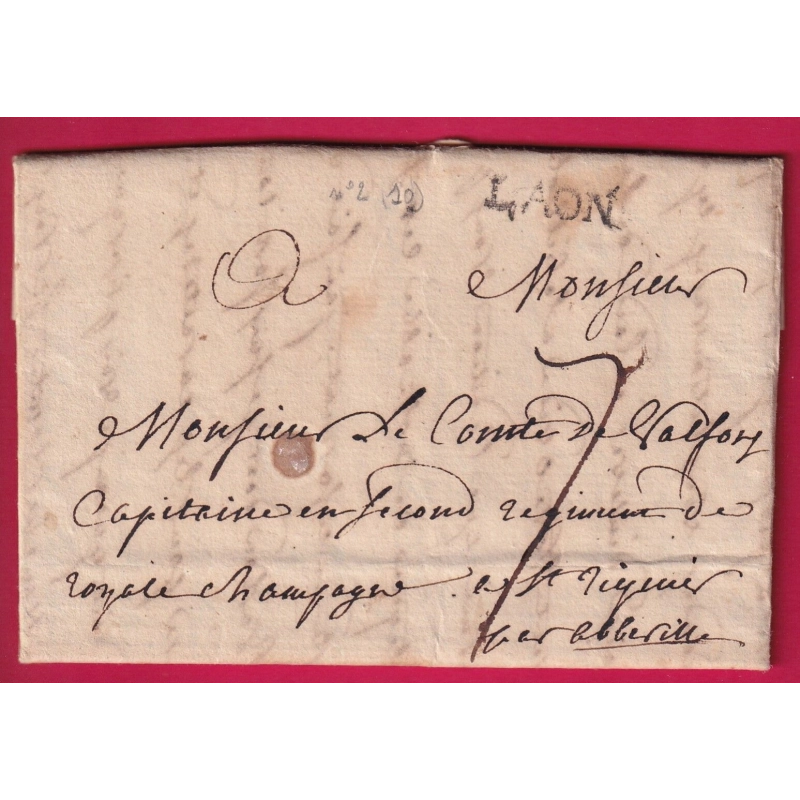 n°2 (10)
LAON
A Monsieur
7
Monsieur Le Comte de Valfons
Capitaine en second regiment de
royale champagne a St riquier
par abbeville